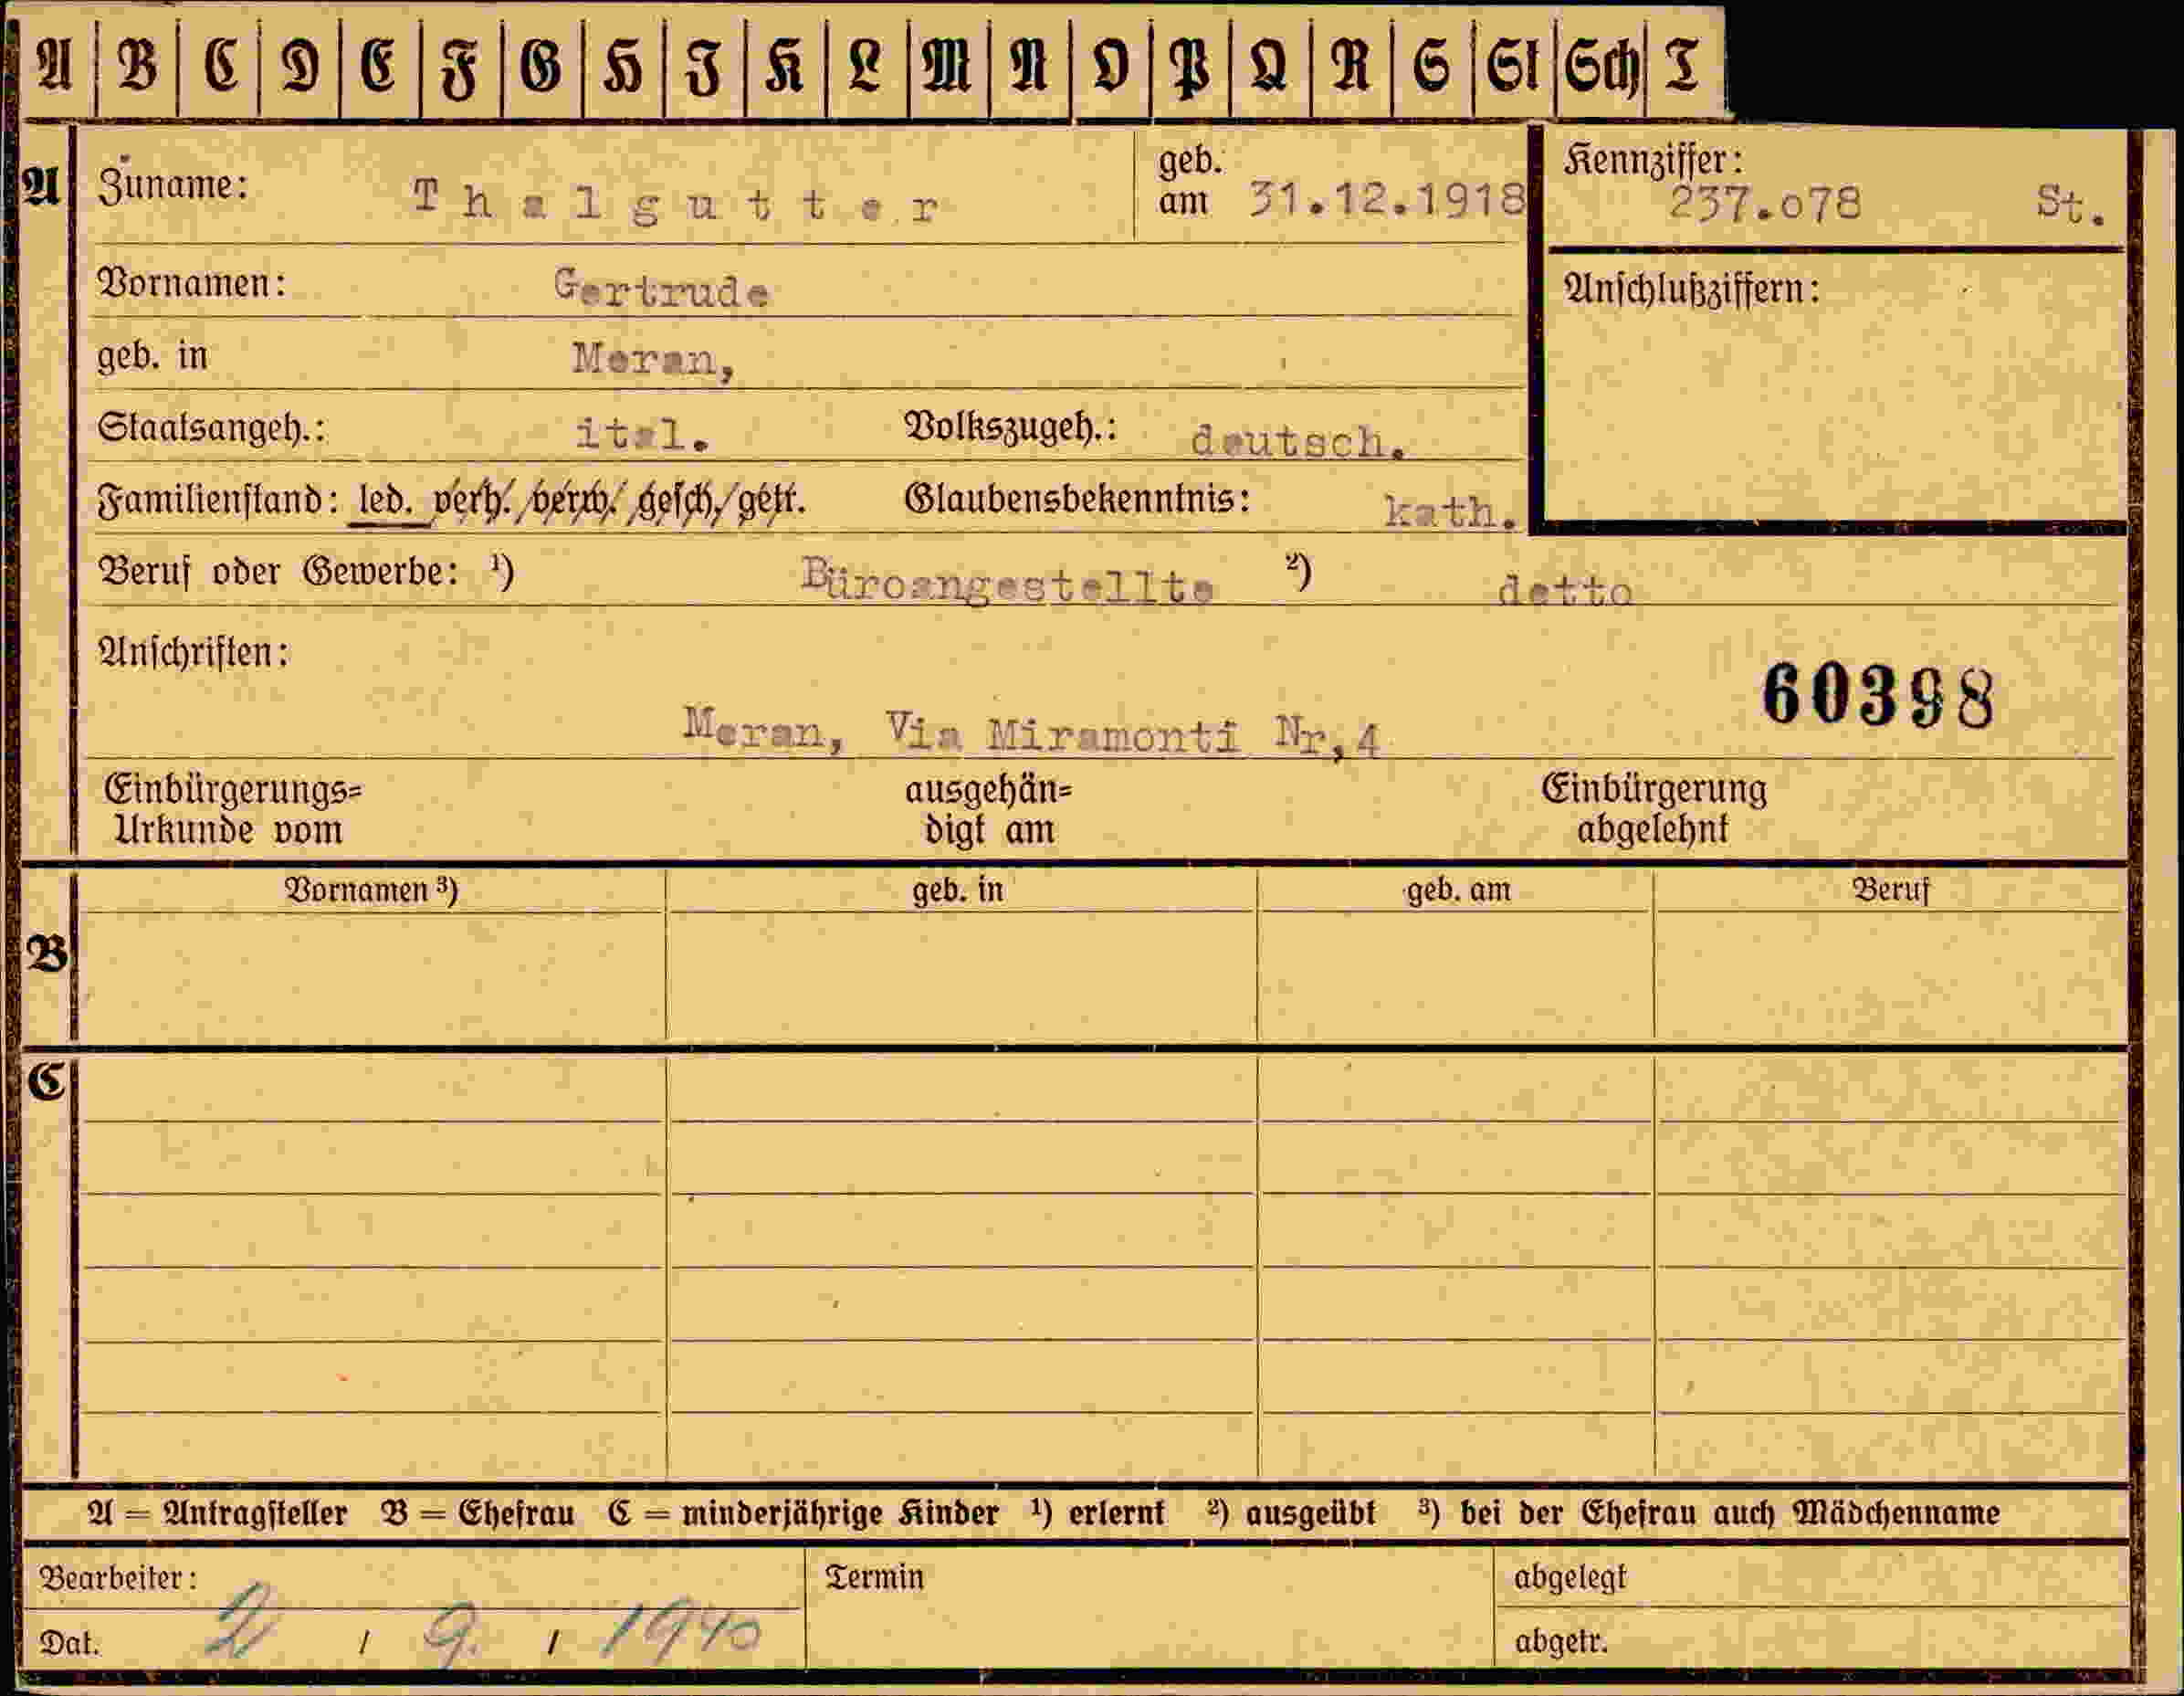 A B C D E F G H J K L M N O P Q R S St Sch T
A Zuname: Thalgutter geb. am 31.12.1918 Kennziffer: 237.078 St.
Vornamen: Gertrude Anschlußziffern:
geb. in Meran,
Staatsangeh.: ital. Volkszugeh.: deutsch.
Familienstand: led. verh. verw. gesch. getr. Glaubensbekenntnis: kath.
Beruf oder Gewerbe: ¹) Büroangestellte ²) detto
Anschriften:
60398
Meran, Via Miramonti Nr,4
Einbürgerungs= ausgehän= Einbürgerung
Urkunde vom digt am abgelehnt
Vornamen ³) geb. in geb. am Beruf
B
C
A = Antragsteller B = Ehefrau C = minderjährige Kinder ¹) erlernt ²) ausgeübt ³) bei der Ehefrau auch Mädchenname
Bearbeiter: Termin abgelegt
Dat. 2 / 9. / 1940 abgetr.